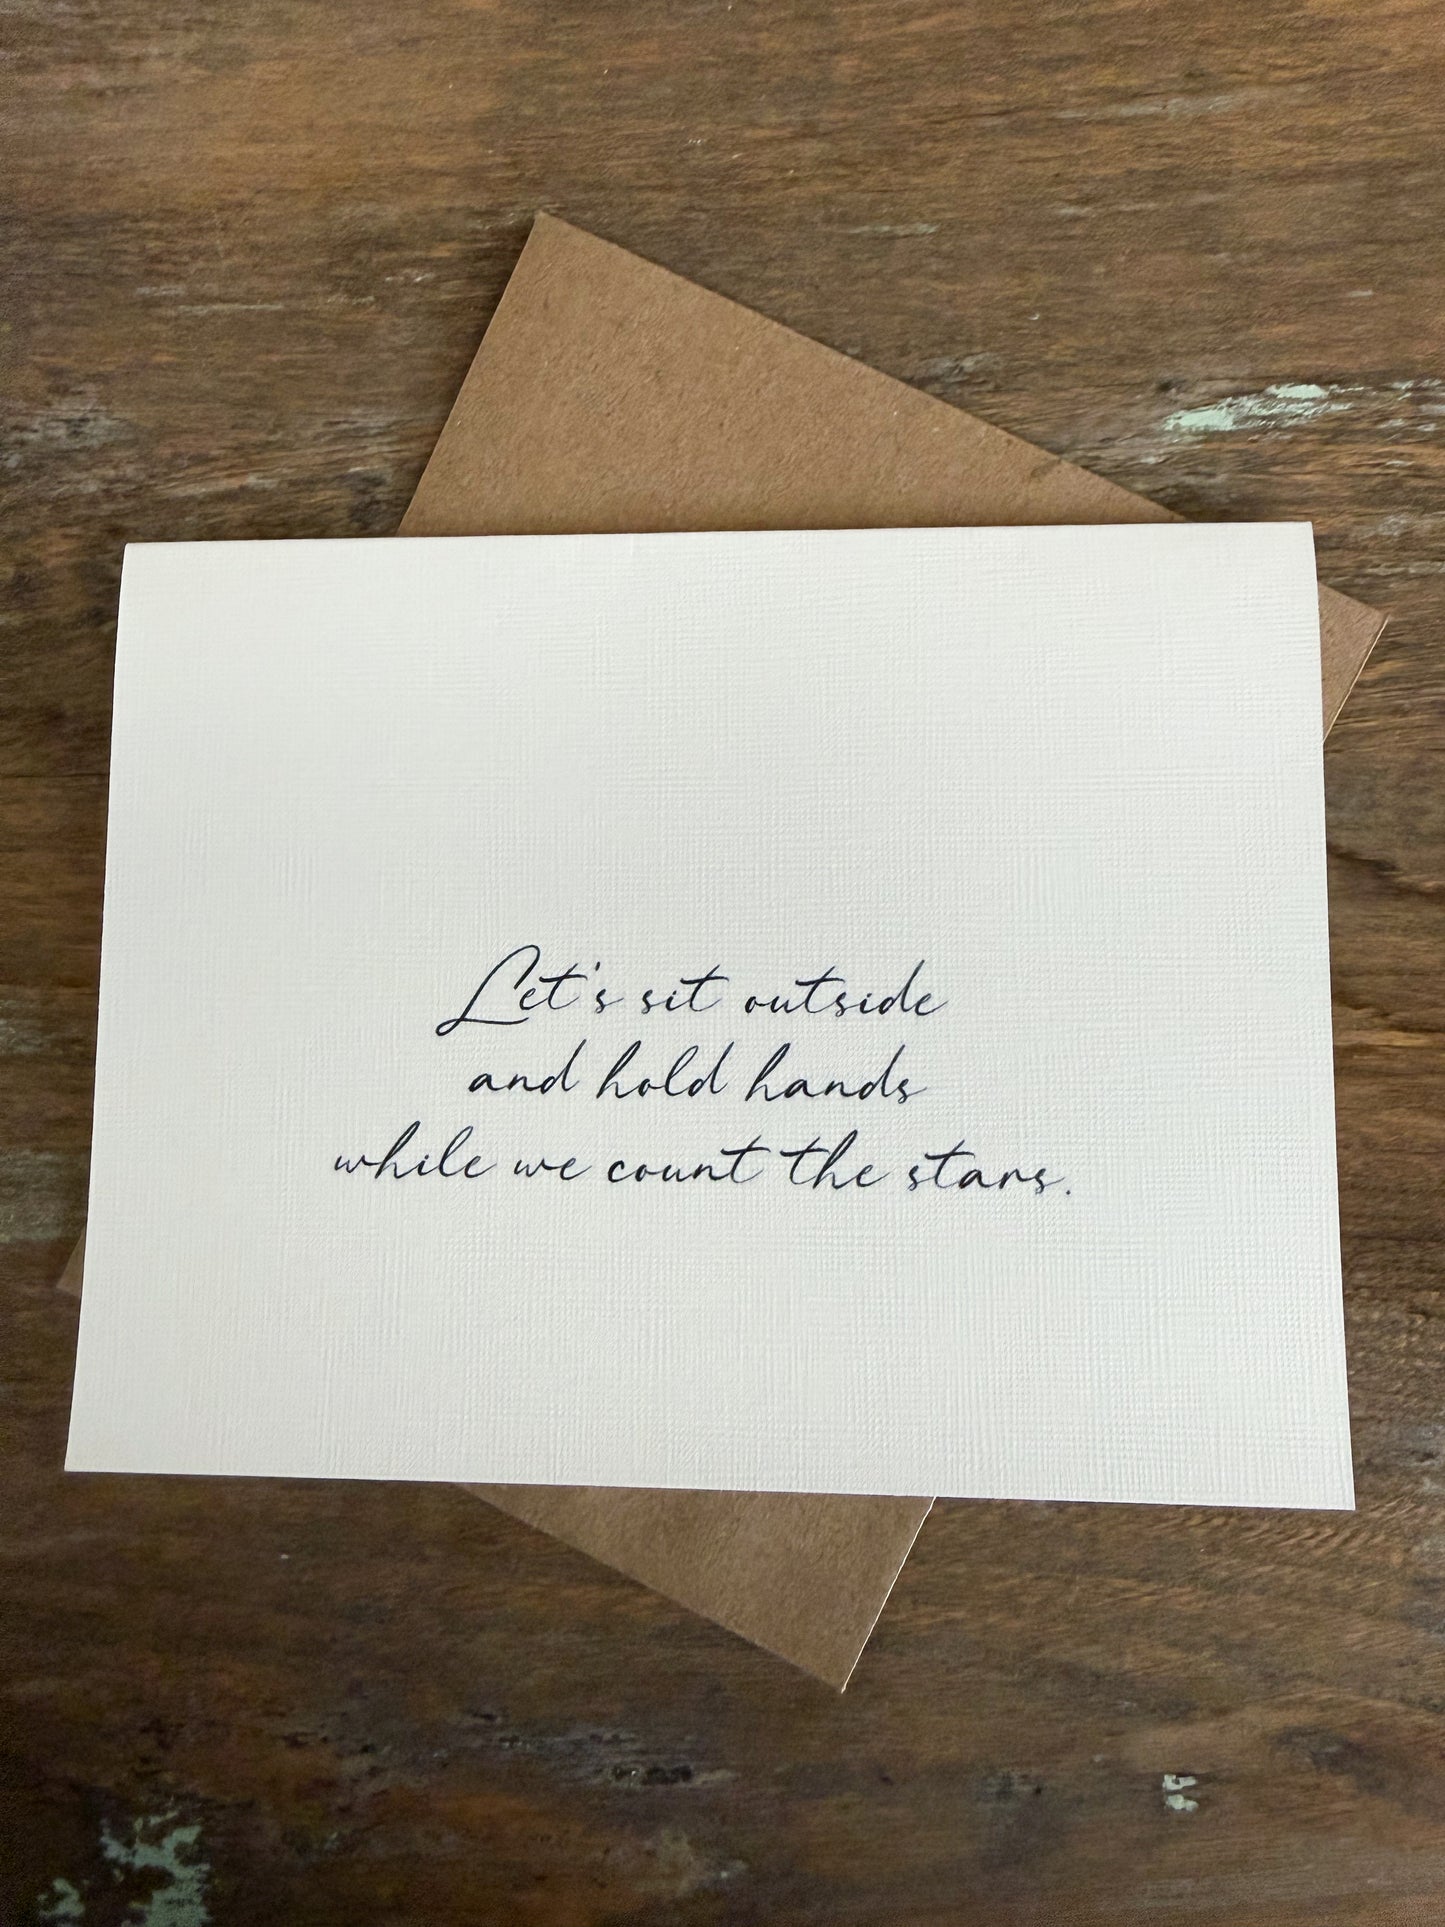 Let's sit outside
and hold hands
while we count the stars.